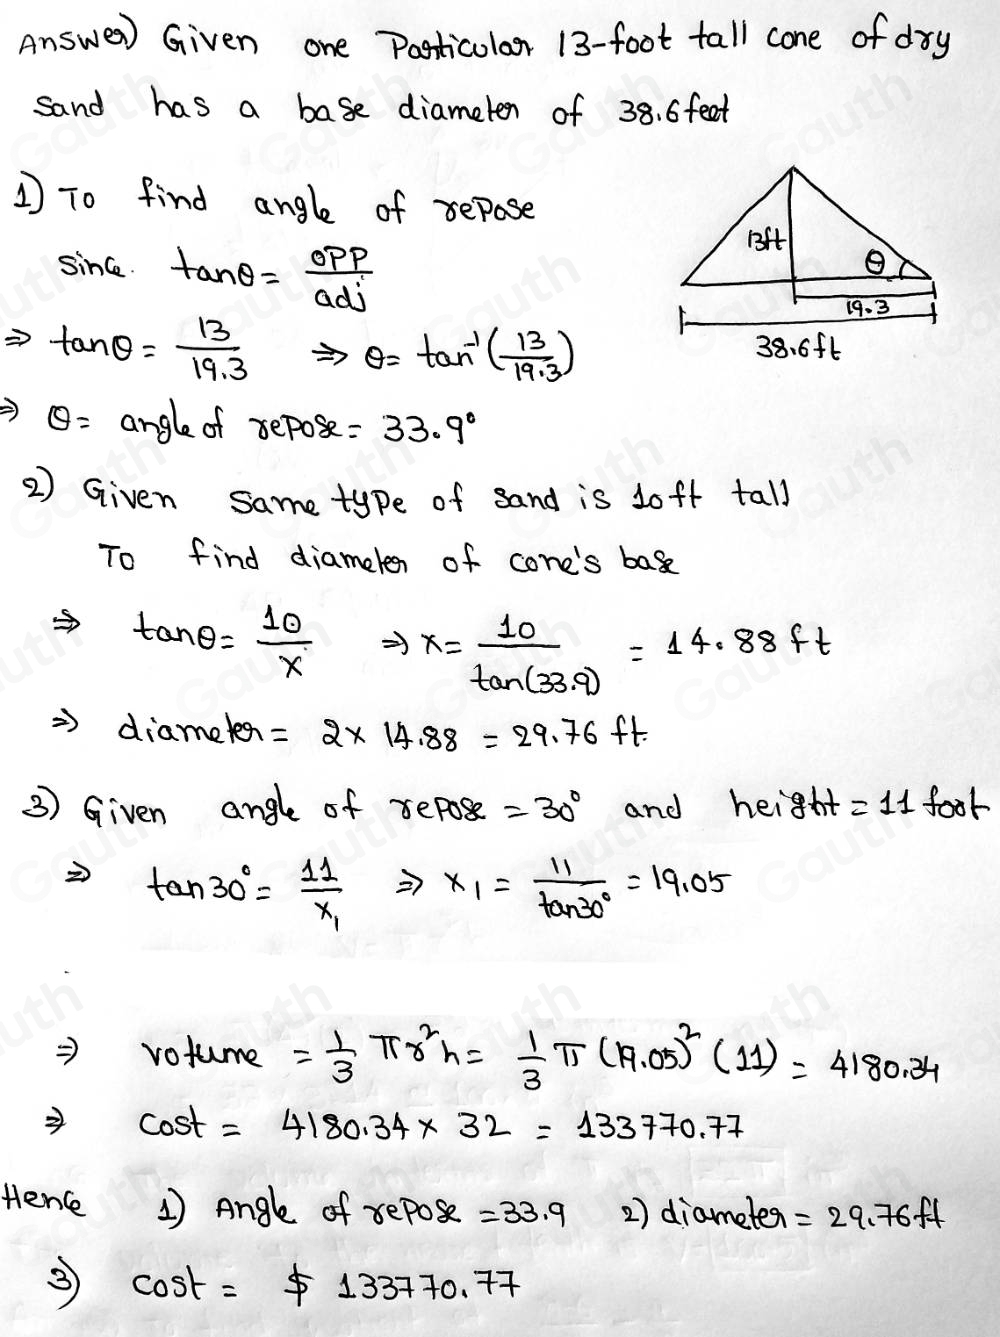 Answer) Given one Particular 13-foot tall cone of dry
sand has a base diameter of 38.6 feet
1) To find angle of rePose
since. tanθ = opp/adj
13ft
θ
19.3
38.6ft
⇒ tanθ = 13/19.3 ⇒ θ = tan⁻¹(13/19.3)
⇒ θ = angle of rePose = 33.9°
2) Given same type of sand is 10ft tall
To find diameter of cone's base
⇒ tanθ = 10/x ⇒ x = 10/tan(33.9) = 14.88 ft
⇒ diameter = 2 x 14.88 = 29.76 ft.
3) Given angle of rePose = 30° and height = 11 foot
⇒ tan30° = 11/x₁ ⇒ x₁ = 11/tan30° = 19.05
⇒ volume = 1/3 πr²h = 1/3 π (19.05)² (11) = 4180.34
⇒ cost = 4180.34 x 32 = 133770.77
Hence 1) Angle of rePose = 33.9 2) diameter = 29.76ft
3) cost = $ 133770.77
Gauth